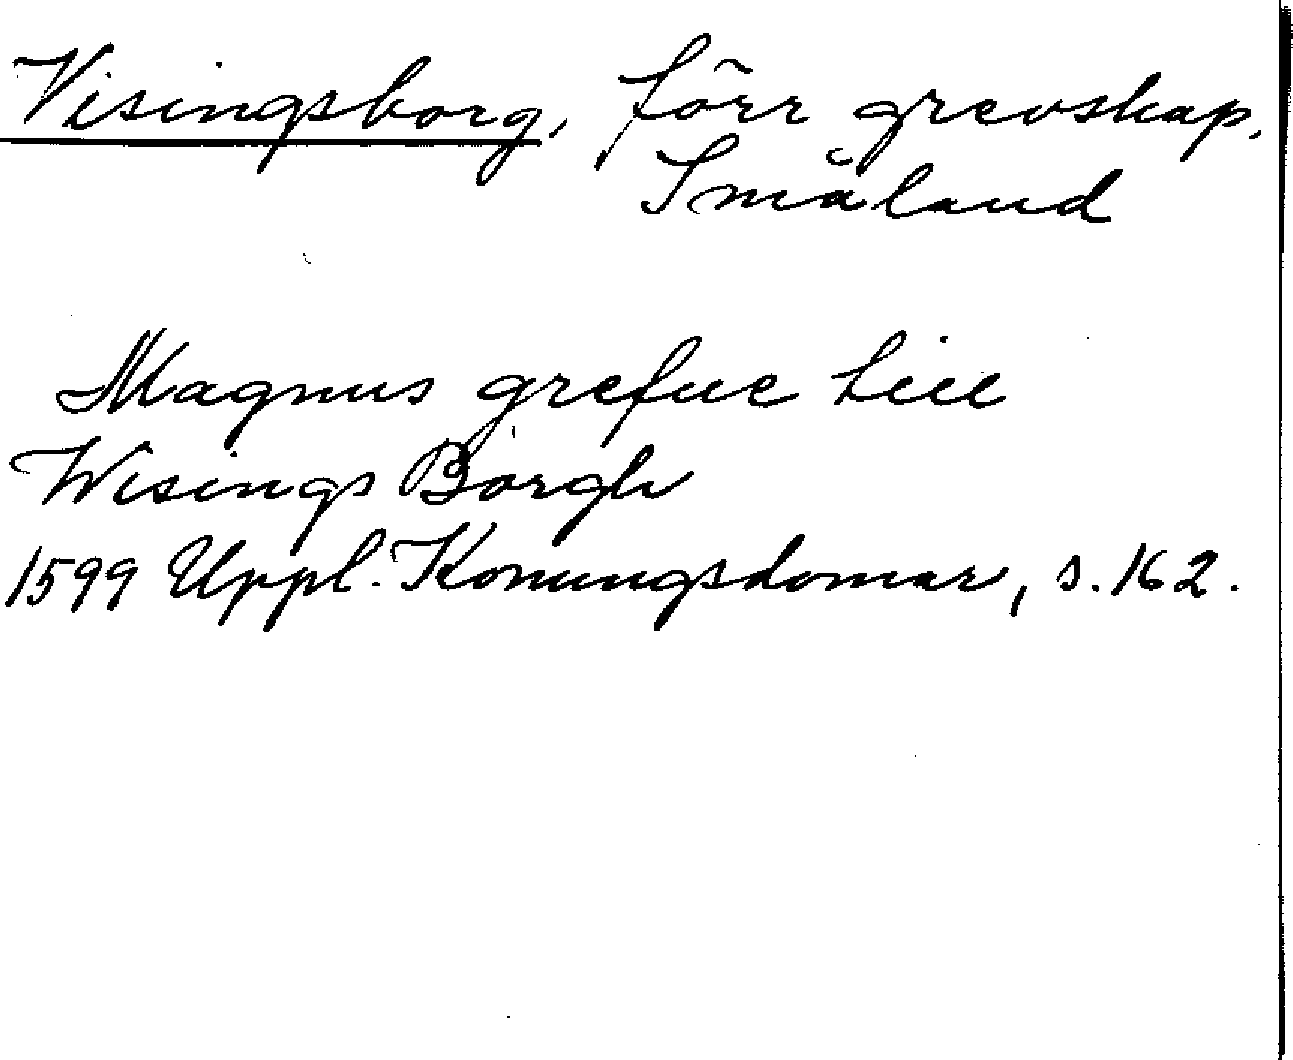 Visingsborg, förr grevskap.
Småland
Magnus grefue till
Wisings Borgh
1599 Uppl. Konungsdomar, s. 162.